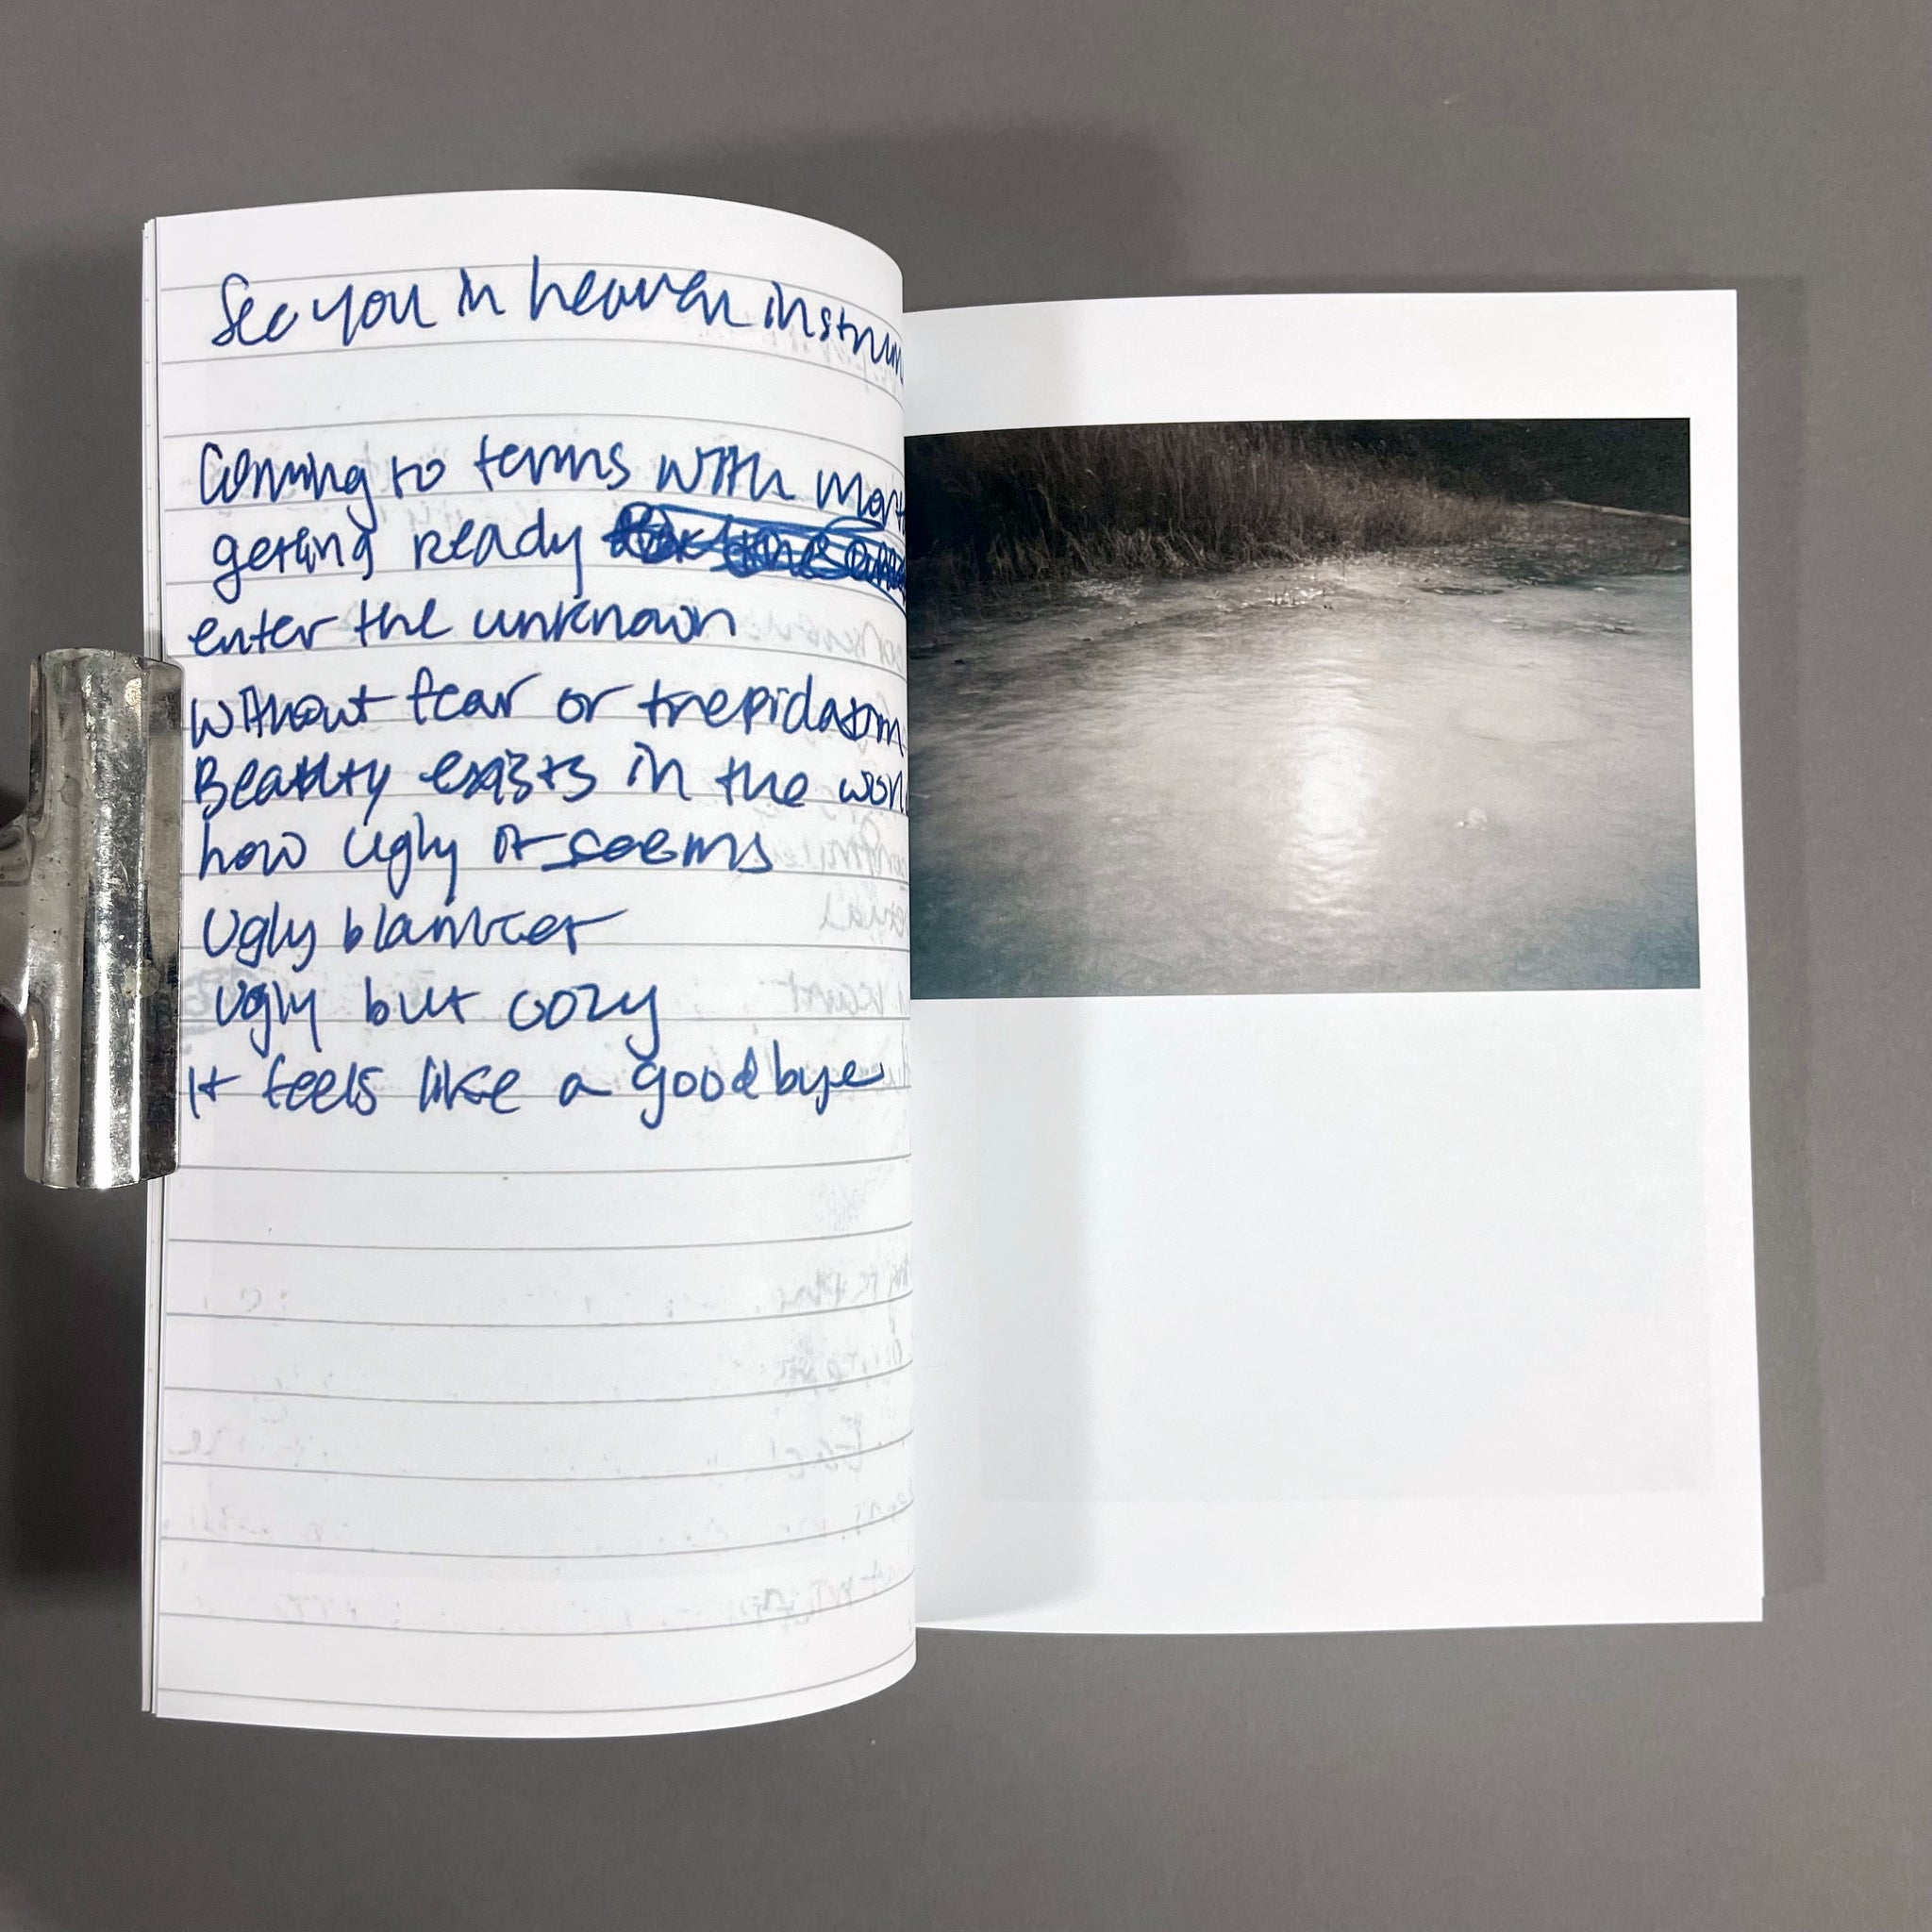 See you in heaven instrum
Coming to terms with mort
getting ready
enter the unknown
Without fear or trepidation
Beauty exists in the worl
how ugly it seems
Ugly blanket
Ugly but cozy
It feels like a goodbye